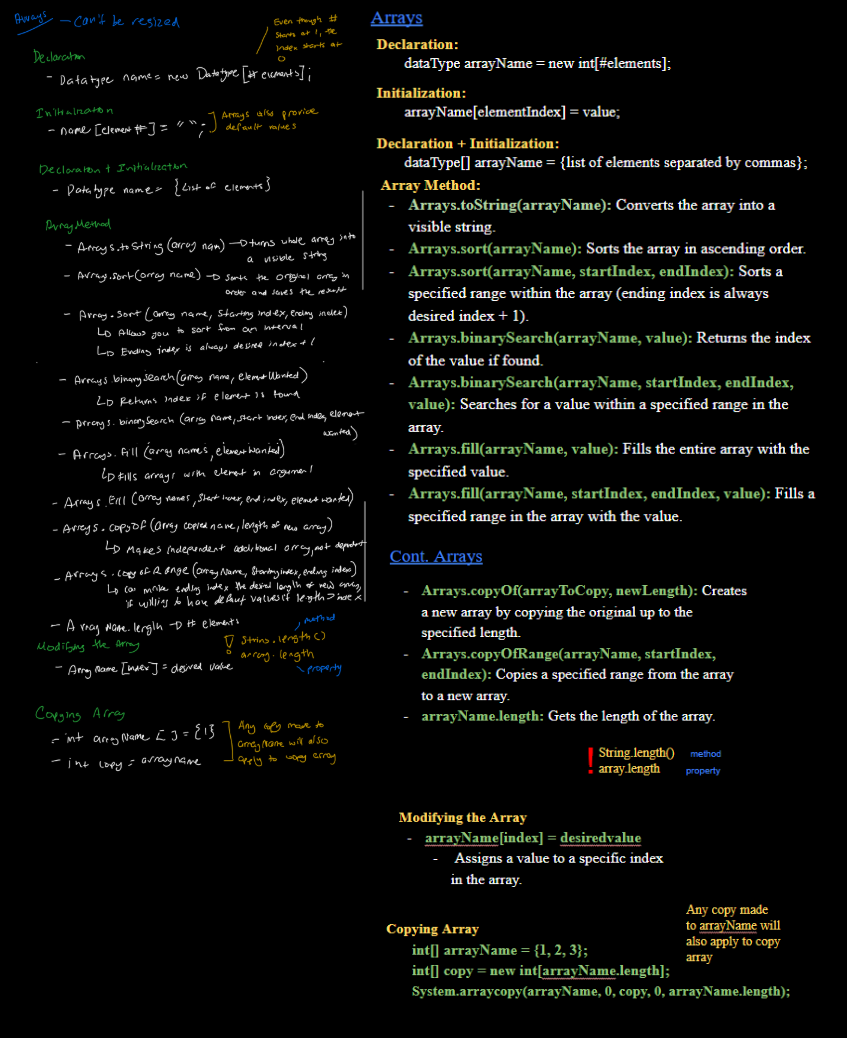 Arrays - Can't be resized
Even though #
starts at 1, the
index starts at
0
Declaration
- Datatype name = new Datatype [# elements];
Initialization
- name [element #] = " ";
Arrays also provide
default values
Declaration + Initialization
- Datatype name = {List of elements}
Array Method
- Arrays.toString (array nam) → turns whole array into
a visible string
- Array.sort (array name) → sorts the original array in
order and saves the result
- Array.sort (array name, starting index, ending index)
↳ Allows you to sort from an interval
↳ Ending index is always desired index + 1
- Arrays binarySearch (array name, element Wanted)
↳ Returns index if element is found
- Arrays.binarySearch (array name, start index, end index, element
wanted)
- Arrays.fill (array names, element Wanted)
↳ fills arrays with element in argument
- Arrays.fill (array names, start index, end index, element wanted)
- Arrays.copyOf (array copied name, length of new array)
↳ Makes independent additional array, not dependent
- Arrays.copyOfRange (array Name, Starting index, ending index)
↳ can make ending index the desired length of new array,
if willing to have default values if length > index
- Array Name.length → # elements
method
! String.length()
array.length
property
Modifying the Array
- Array name [index] = desired value
Copying Array
- int arrayName [ ] = {1}
- int copy = arrayname
Any copy made to
arrayName will also
apply to copy array
Arrays
Declaration:
dataType arrayName = new int[#elements];
Initialization:
arrayName[elementIndex] = value;
Declaration + Initialization:
dataType[] arrayName = {list of elements separated by commas};
Array Method:
- Arrays.toString(arrayName): Converts the array into a
visible string.
- Arrays.sort(arrayName): Sorts the array in ascending order.
- Arrays.sort(arrayName, startIndex, endIndex): Sorts a
specified range within the array (ending index is always
desired index + 1).
- Arrays.binarySearch(arrayName, value): Returns the index
of the value if found.
- Arrays.binarySearch(arrayName, startIndex, endIndex,
value): Searches for a value within a specified range in the
array.
- Arrays.fill(arrayName, value): Fills the entire array with the
specified value.
- Arrays.fill(arrayName, startIndex, endIndex, value): Fills a
specified range in the array with the value.
Cont. Arrays
- Arrays.copyOf(arrayToCopy, newLength): Creates
a new array by copying the original up to the
specified length.
- Arrays.copyOfRange(arrayName, startIndex,
endIndex): Copies a specified range from the array
to a new array.
- arrayName.length: Gets the length of the array.
! String.length() method
array.length property
Modifying the Array
- arrayName[index] = desiredvalue
- Assigns a value to a specific index
in the array.
Copying Array
int[] arrayName = {1, 2, 3};
int[] copy = new int[arrayName.length];
System.arraycopy(arrayName, 0, copy, 0, arrayName.length);
Any copy made
to arrayName will
also apply to copy
array